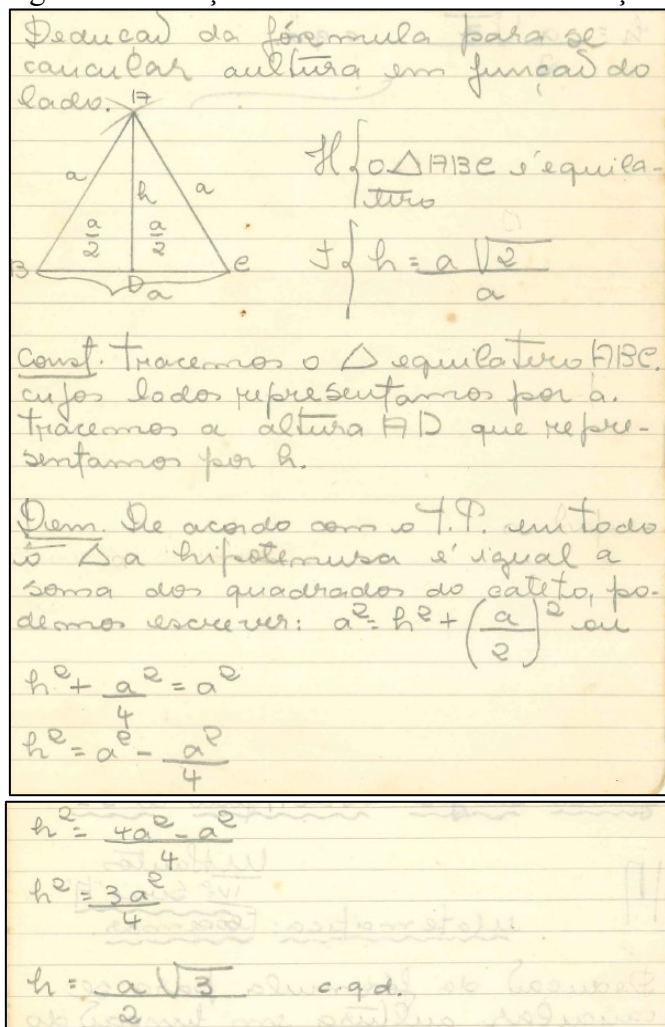 Deducaõ da fórmula para se
caucular aultura em funçaõ do
lado.
A
a
a
h
a/2
a/2
B
D
C
a
H { o △ ABC é equila-
tero
T { h = a √2 / a
Const. Tracemos o △ equilatero ABC.
cujos lados representamos por a.
tracemos a altura AD que repre-
sentamos por h.
Dem. De acordo com o T.P. em todo
o △ a hipotenusa é igual a
soma dos quadrados do cateto, po-
demos escrever: a² = h² + (a/2)² ou
h² + a²/4 = a²
h² = a² - a²/4
h² = 4a² - a² / 4
h² = 3a²/4
h = a √3 / 2 c.q.d.